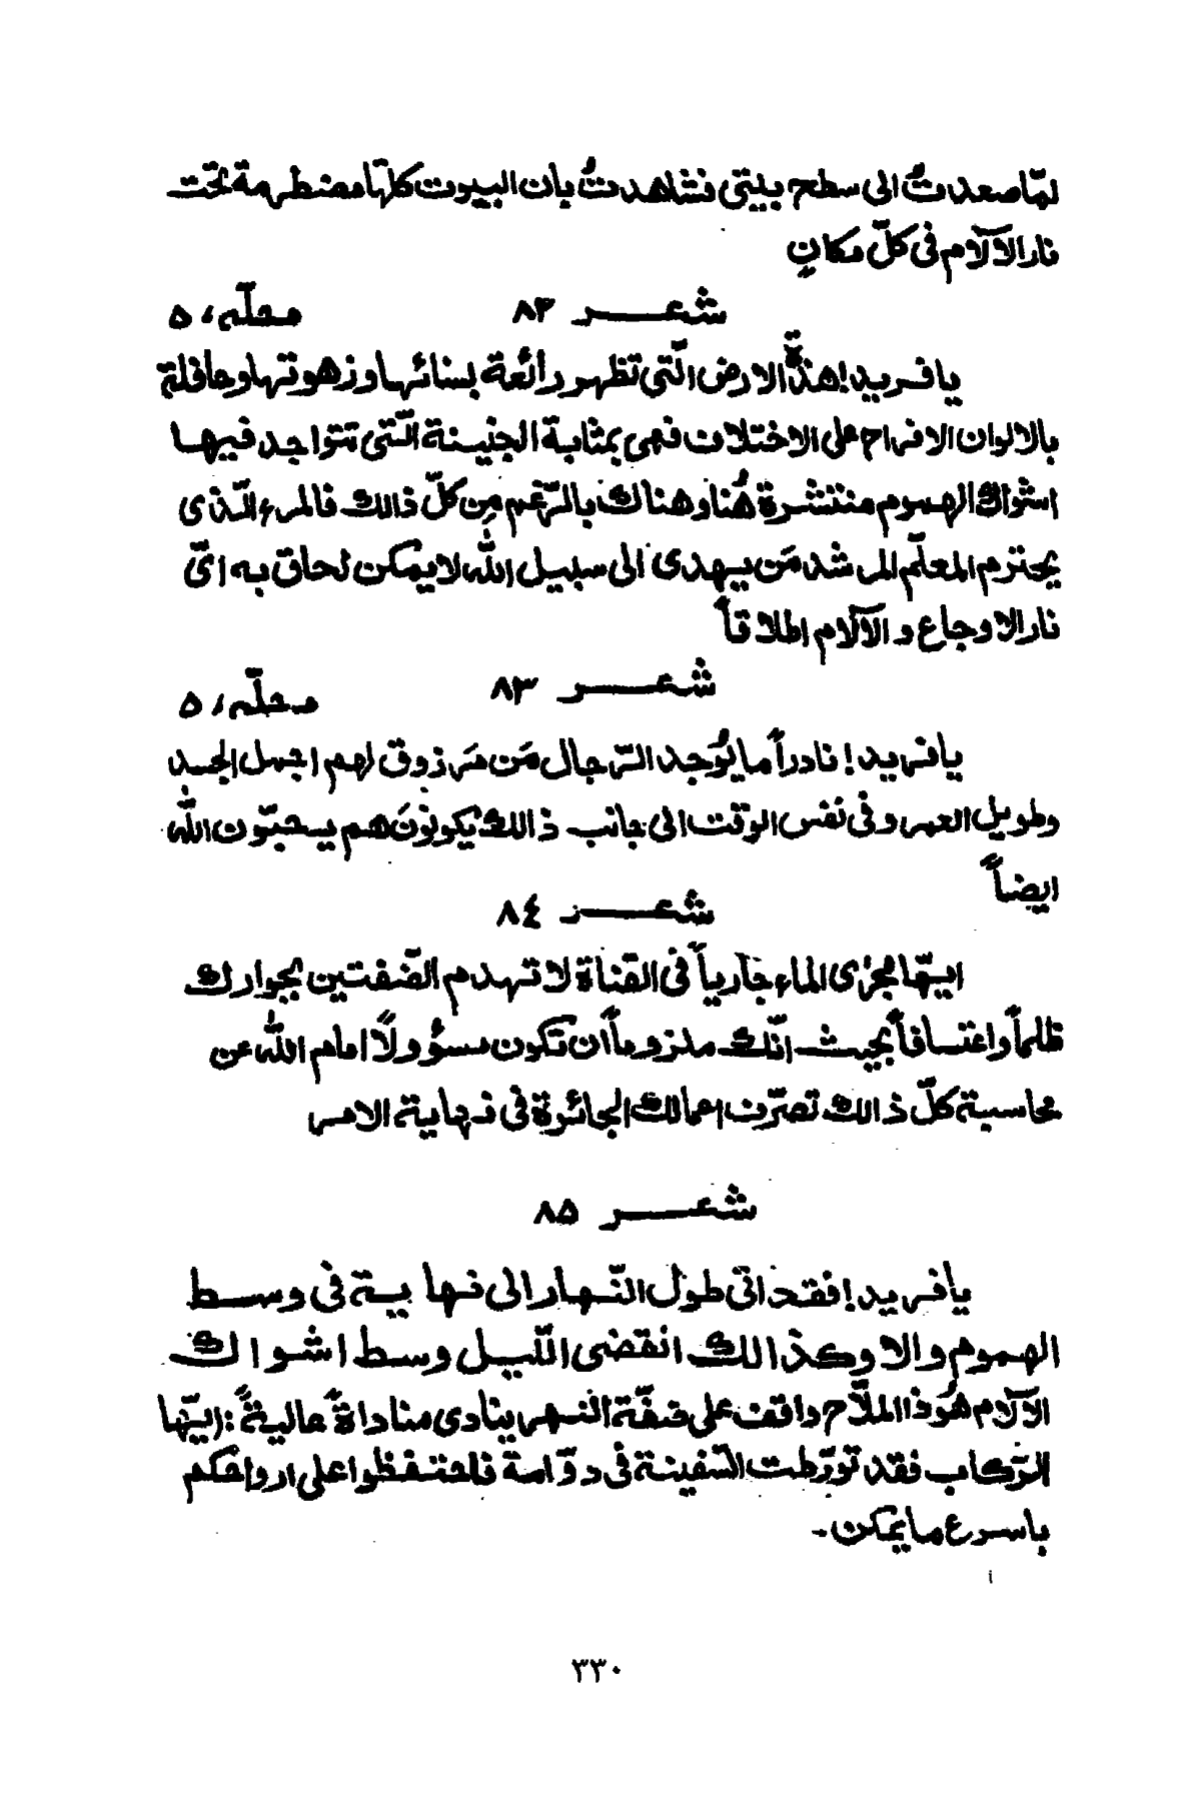 لمّا صعدتُ الى سطح بيتى فشاهدتُ بان البيوت كلّها مضطرمة تحت
نار الآلام فى كلّ مكانٍ
شعر ٨٢ محلّه، ۵
يا فريد! هذة الارض الّتى تظهر رائعة بسنائها و زهوتها و حافلة
بالالوان الافراح على الاختلاف فهى بمثابة الجنينة الّتى تتواجد فيها
اشواك الهموم منتشرة هُنا وهناك بالرّغم مِن كلّ ذالك فالمرء الّذى
يحترم المعلّم المرشد مَن يهدى الى سبيل الله لا يمكن لحاق به اىّ
نار الاوجاع و الآلام اطلاقاً
شعر ٨٣ محلّه، ۵
يا فريد! نادراً ما يُوجد الرّجال مَن مَرزوق لهم اجمل الجسد
وطويل العمر و فى نفس الوقت الى جانب ذالك يكونونَ هم يحبّون الله
ايضاً
شعر ٨٤
ايّها مجرى الماء جارياً فى القناة لا تهدم الضفتين بجوارك
ظلماً واعتسافاً بحيث انّك ملزوماً أن تكون مسؤولاً امام الله عن
محاسبة كلّ ذالك تصرّف اعمالك الجائرة فى نهاية الامر
شعر ٨۵
يا فريد! فقد اتى طول النّهار الى نهاية فى وسط
الهموم والا وكذالك انقضى اللّيل وسط اشواك
الآلام هُوَذا الملاّح واقف على ضفّة النهر ينادى مناداةً عاليةً: (ايّها
الرّكاب فقد تورّطت السّفينة فى دوّامة فاحتفظوا على ارواحكم
باسرع ما يمكن.
٣٣٠